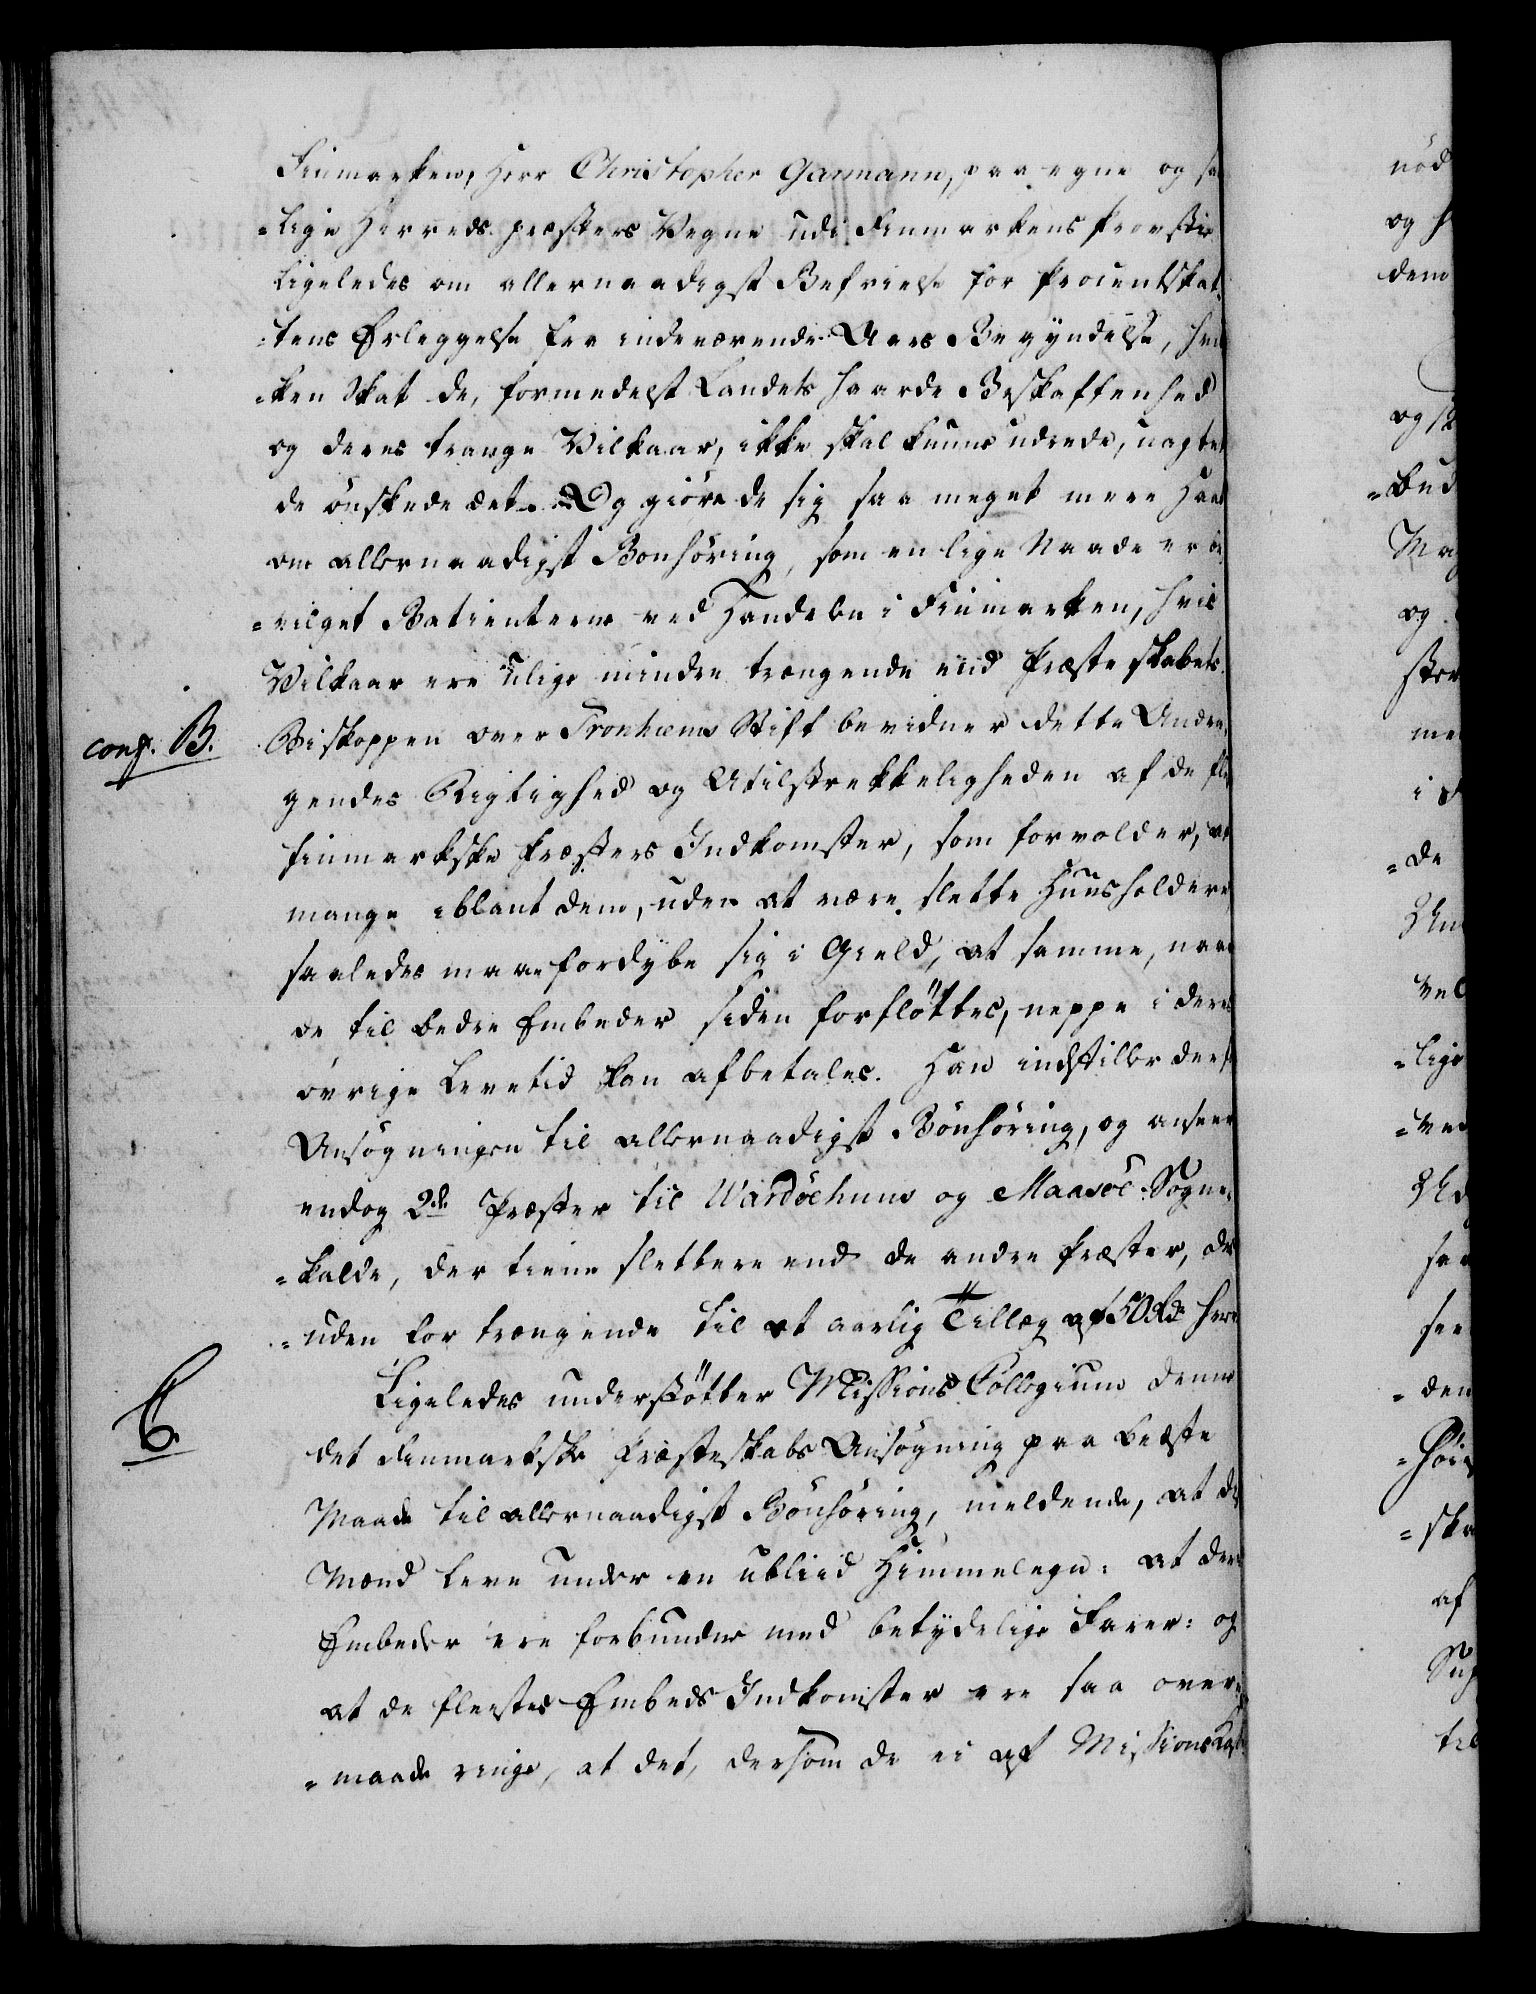 Finmarken, Herr Christopher Garmann, paa egne og sa
=lige Herreds præsters Vegne udi Finmarkens Provstie
ligeledes om allernaadigst Befrielse for Procentskat,
=tens Erleggelse fra indeværende Aars Begyndelse, hvil
=ken Skat de, formedelst Landets haarde Beskaffenhed
og deres trange Vilkaar, ikke skal kunne udrede, uagtet
de ønskede det. Og giøre de sig saa meget mere Haab
om allernaadigst Bønhøring, som en lige Naade er be
=vilget Betienterne ved Handelen i Finmarken, hvis
Vilkaar ere ulige mindre trængende end Præsteskabets.
conf. B. Biskoppen over Tronhiems Stift bevidner dette Andra,
gendes Rigtighed og Utilstrekkeligheden af de fle
finmarkske Præsters Indkomster, som forvolder, at
mange iblant dem, uden at være slette Huusholdere,
saaledes maae fordybe sig i Gield, at samme, naar
de til bedre Embeder siden forfløttes, neppe i deres
øvrige Levetid kan afbetales. Han indstiller derfor
Ansøgningen til allernaadigst Bønhøring, og anseer
endog 2de Præster til Wardøehuus og Maasøe Sogne
=kalde, der tiene slettere end de andre Præster, des
=uden for trængende til et aarlig Tillæg af 50 Rd hver
C. Ligeledes understøtter Missions Collegium denne
det finmarkske Præsteskabs Ansøgning paa beste
Maade til allernaadigst Bønhøring, meldende, at de
Mænd leve under en ubliid Himmelegn: at deres
Embeder ere forbundne med betydelige Farer: og
at de fleestes Embeds Indkomster ere saa over
=maade ringe, at det, dersom de ei af Missions Kas